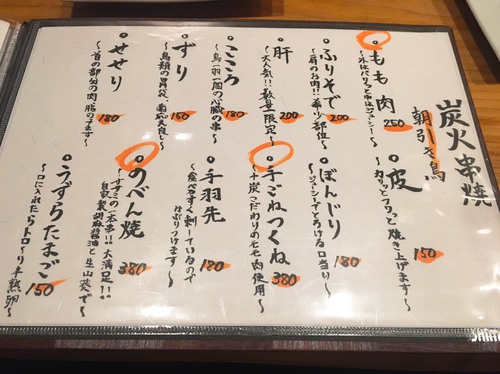 炭火串焼
朝引き鳥
もも肉
～外はパリッと中はジューシー～
250
ふりそで
～肩のお肉!!希少部位～
200
肝
～大人気!!数量限定～
200
こころ
～鳥一羽一個の心臓の串～
180
ずり
～鳥類の胃袋、歯応え良し～
150
せせり
～首の部分の肉、脂のってます～
180
皮
～カリッとフワッと焼き上げます～
150
ぼんじり
～ジューシーでとろける口当り～
180
手ごねつくね
～十炭こだわりのモモ肉使用～
380
手羽先
～食べやすく刺しているので
かぶりつけます～
180
のべん焼
～すずみの一本串!!大満足!!
自家製胡麻醤油と生山葵で～
380
うずらたまご
～口に入れたらトロ～リ半熟卵～
150